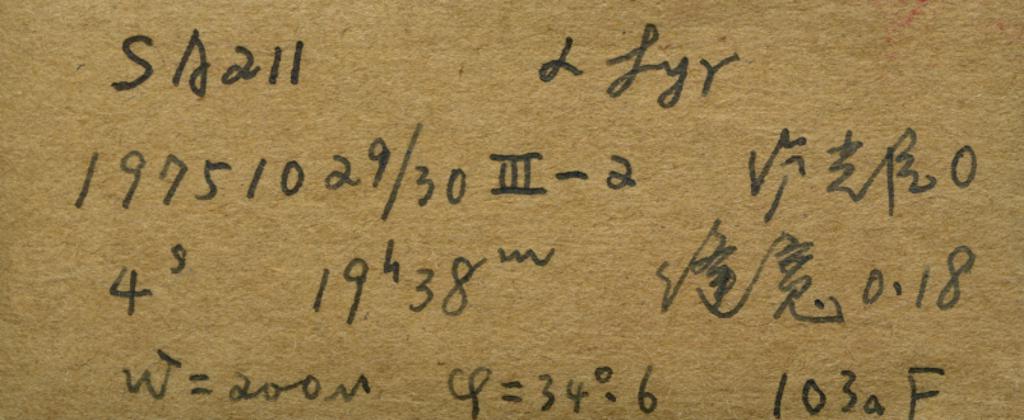 SA211 α Lyr
1975 10 29/30 III-2 光尾0
4ˢ 19ʰ38ᵐ 缝宽 0.18
W=200μ φ=34°.6 103aF